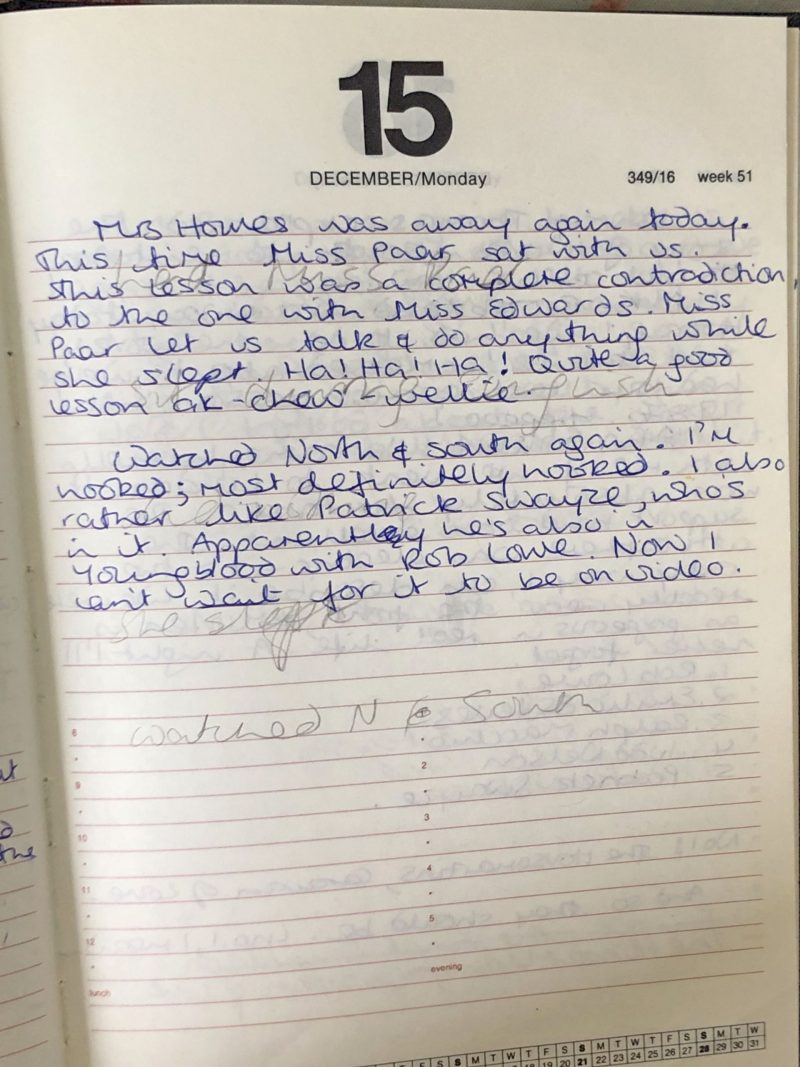 15
DECEMBER/Monday 349/16 week 51
Mrs Homes was away again today.
This time Miss Paar sat with us.
This lesson was a complete contradiction,
to the one with Miss Edwards. Miss
Paar let us talk & do anything while
she slept. Ha! Ha! Ha! Quite a good
lesson ak-chew-wellie.
Watched North & South again. I'm
hooked; most definitely hooked. I also
rather like Patrick Swayze, who's
in it. Apparently he's also in
Youngblood with Rob Lowe. Now I
can't wait for it to be on video.
She slept
Watched N & South
8
2
9
3
10
4
11
5
12
evening
lunch
S M T W T F S S M T W T F S S M T W
19 20 21 22 23 24 25 26 27 28 29 30 31